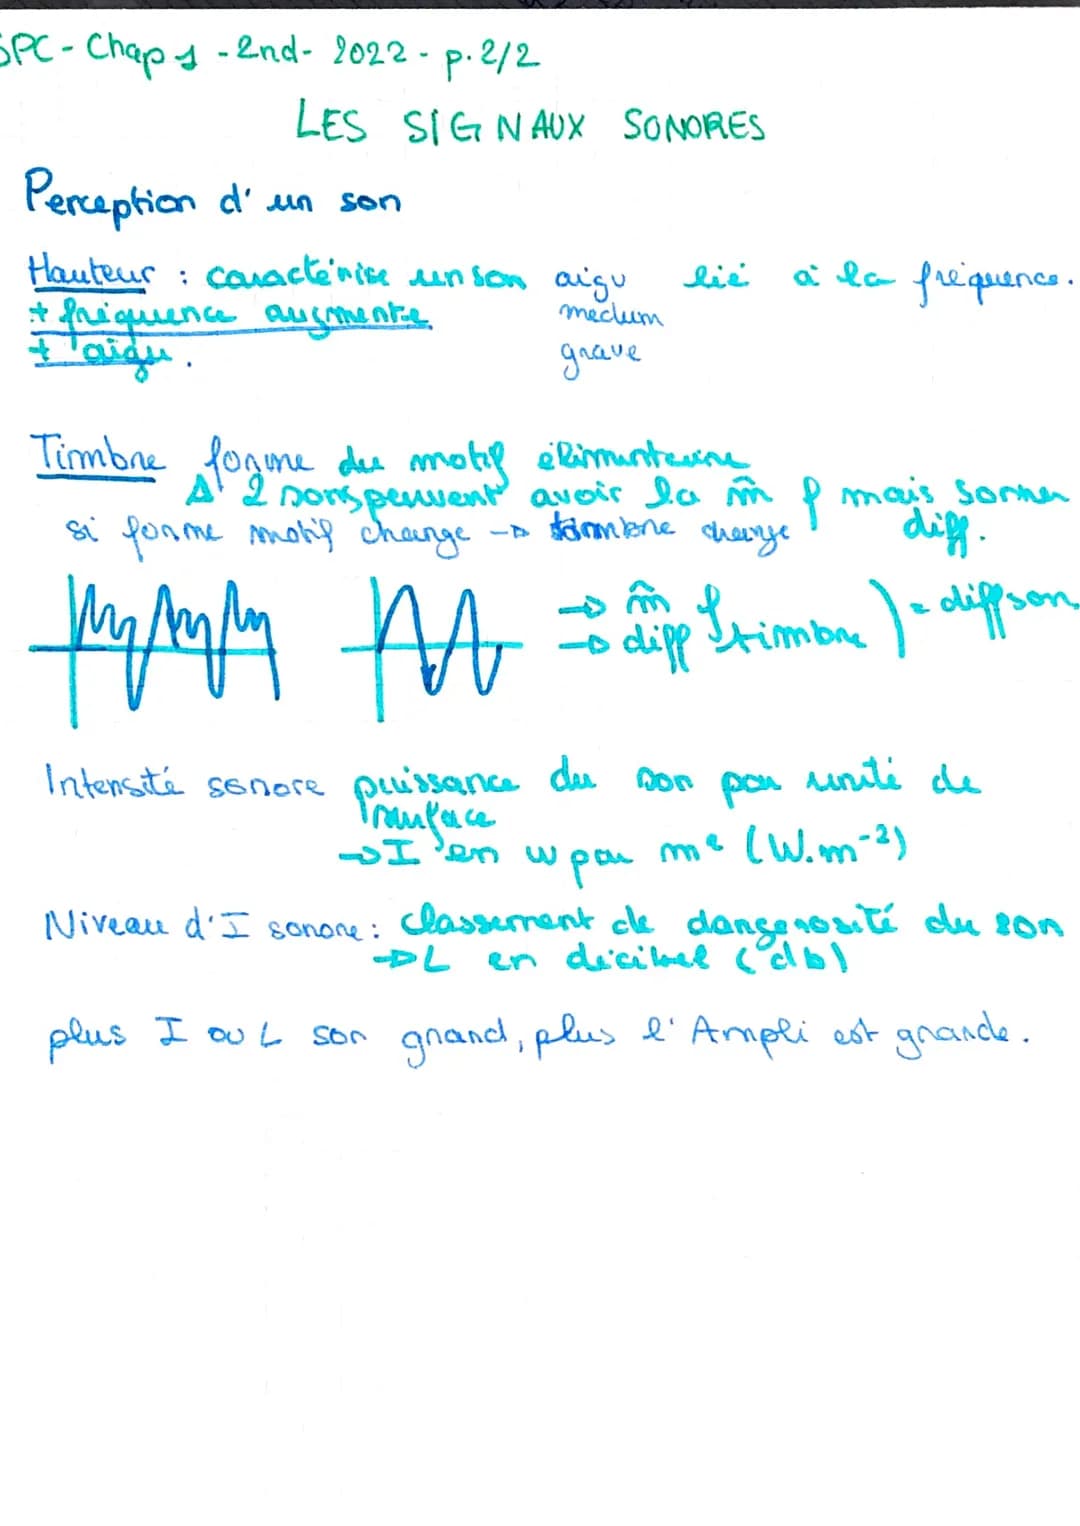 SPC - Chap 1 - 2nd - 2022 - p. 2/2
LES SIGNAUX SONORES
Perception d'un son
Hauteur : caractérise un son aigu lié à la fréquence.
+ fréquence augmente medium
+ aigu. grave
Timbre forme du motif élémentaire
⚠ 2 sons peuvent avoir la m̂ f mais sonner
si forme motif change → timbre change diff.
→ m̂ f ) = diff son
→ diff timbre
Intensité sonore puissance du son par unité de
surface
→ I en w par m² (W.m-2)
Niveau d'I sonore : classement de dangerosité du son
→ L en décibel (db)
plus I ou L son grand, plus l'Ampli est grande.